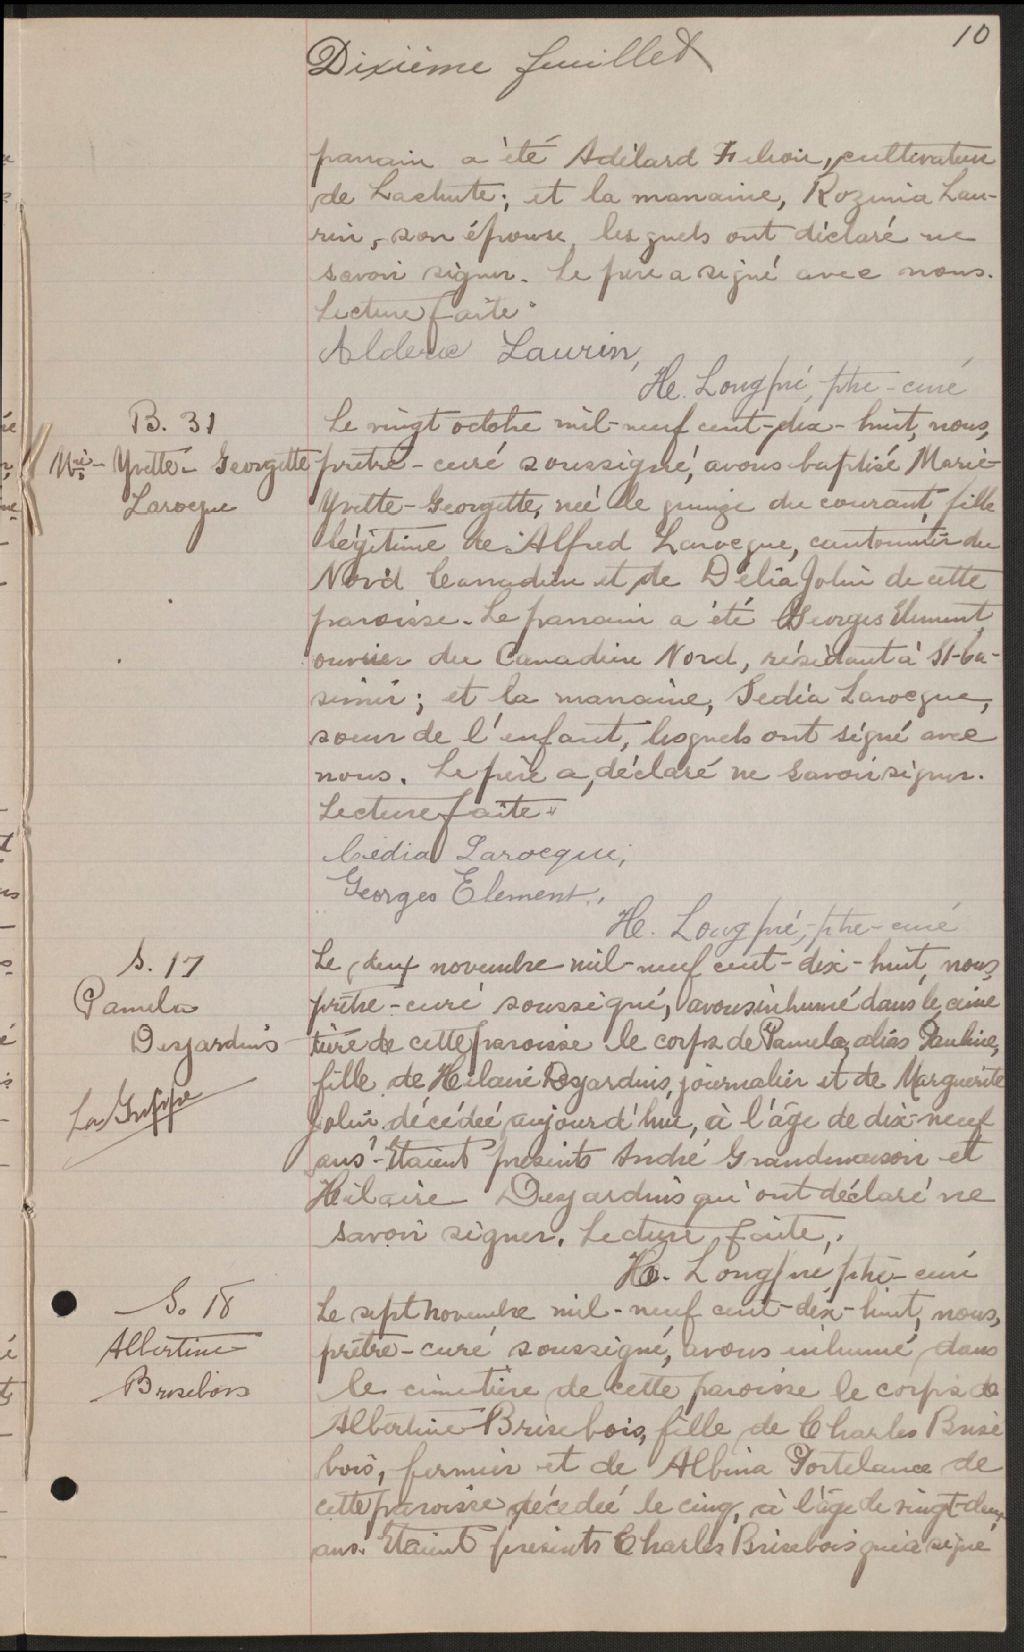 10
Dixième feuillet
parrain a été Adélard Filion, cultivateur
de Lachute; et la marraine, Rozinia Lau-
rin, son épouse, lesquels ont déclaré ne
savoir signer. Le père a signé avec nous.
Lecture faite.
Aldéric Laurin,
He. Longpré, ptre-curé
B. 31
Mie-Yvette-Georgette
Larocque
Le vingt octobre mil-neuf cent-dix-huit, nous,
prêtre-curé soussigné, avons baptisé Marie-
Yvette-Georgette, née le quinze du courant, fille
légitime de Alfred Larocque, cantonnier du
Nord Canadien et de Délia Jolin de cette
paroisse. Le parrain a été Georges Element,
ouvrier du Canadien Nord, résidant à St-Ca-
simir; et la marraine, Cédia Larocque,
soeur de l'enfant, lesquels ont signé avec
nous. Le père a déclaré ne savoir signer.
Lecture faite.
Cédia Larocque,
Georges Element,
He. Longpré, ptre-curé
S. 17
Pamela
Desjardins
La Grippe
Le deux novembre mil-neuf cent-dix-huit, nous,
prêtre-curé soussigné, avons inhumé dans le cime
tière de cette paroisse le corps de Pamela, alias Pauline,
fille de Hilaire Desjardins, journalier et de Marguerite
Jolin décédée aujourd'hui, à l'âge de dix-neuf
ans. Etaient présents André Grandmaison et
Hilaire Desjardins qui ont déclaré ne
savoir signer. Lecture faite.
He. Longpré ptre-curé
S. 18
Albertine
Brisebois
Le sept novembre mil-neuf cent-dix-huit, nous,
prêtre-curé soussigné, avons inhumé dans
le cimetière de cette paroisse le corps de
Albertine Brisebois, fille de Charles Brise
bois, fermier et de Albina Portelance de
cette paroisse décédée le cinq, à l'âge de vingt-deux
ans. Etaient présents Charles Brisebois qui a signé